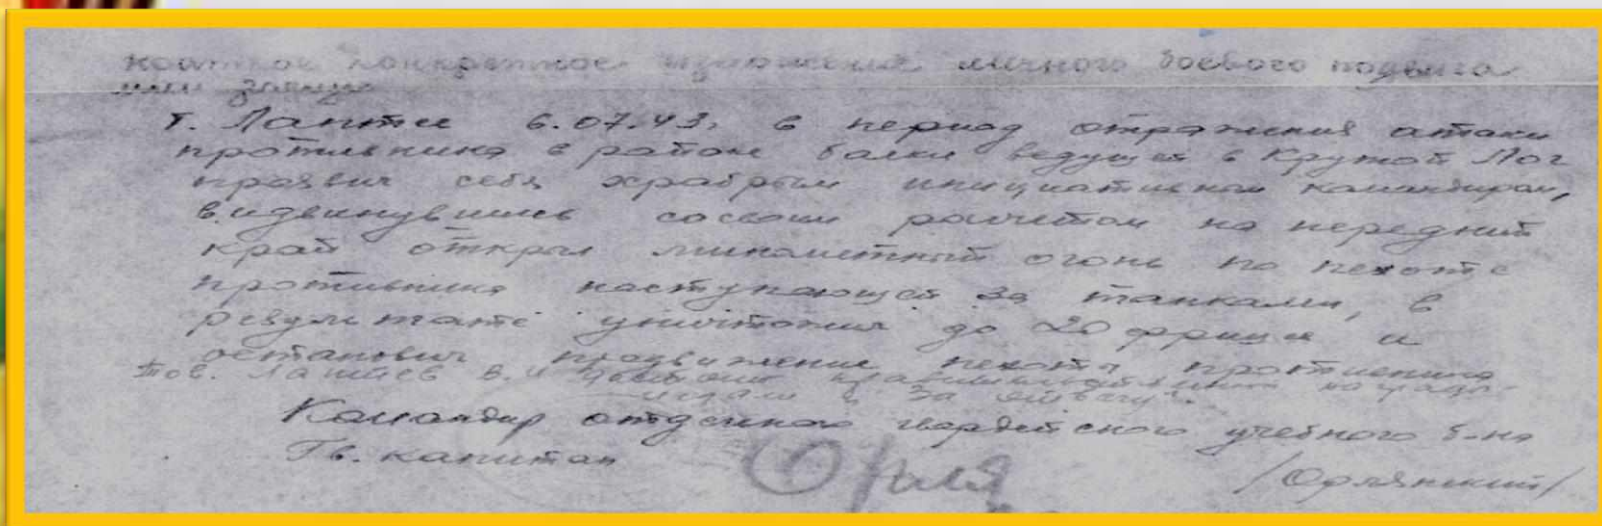 краткое конкретное изложение личного боевого подвига
или заслуг
т. Лаптев 6.07.43. в период отражения атаки
противника в районе балки ведущей в Крутой Лог
проявил себя храбрым инициативным командиром,
выдвинувшись со своим расчетом на передний
край открыл минометный огонь по пехоте
противника наступающей за танками, в
результате уничтожил до 20 фрицев и
остановил продвижение пехоты противника
тов. Лаптев В.И достоин правительственной награды
медали "За отвагу".
Командир отдельного гвардейского учебного б-на
Гв. капитан /Орлянский/